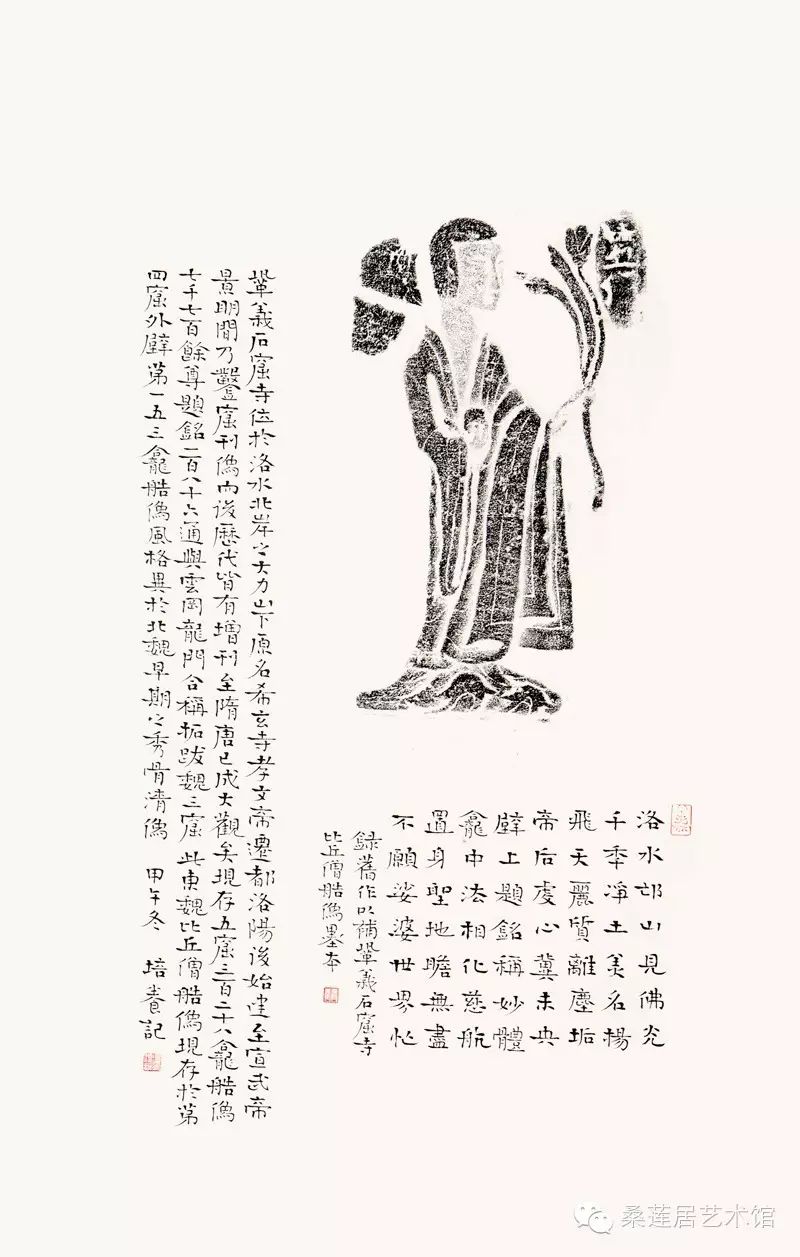 洛水邙山見佛光
千秊凈土美名揚
飛天麗質離塵垢
帝后虔心冀未央
壁上題銘稱妙體
龕中法相化慈航
置身聖地瞻無盡
不願娑婆世界忙
録舊作以補鞏義石窟寺
比丘僧艁像墨本
鞏義石窟寺位於洛水北岸之大力山下原名希玄寺孝文帝遷都洛陽後始建至宣武帝
景明間乃鑿窟刊像而後歷代皆有增刊至隋唐已成大觀矣現存五窟三百二十八龕艁像
七千七百餘尊題銘二百八十六通與雲岡龍門合稱拓跋魏三窟此東魏比丘僧艁像現存於第
四窟外壁第一五三龕艁像風格異於北魏早期之秀骨清像 甲午冬 培養記
桑莲居艺术馆